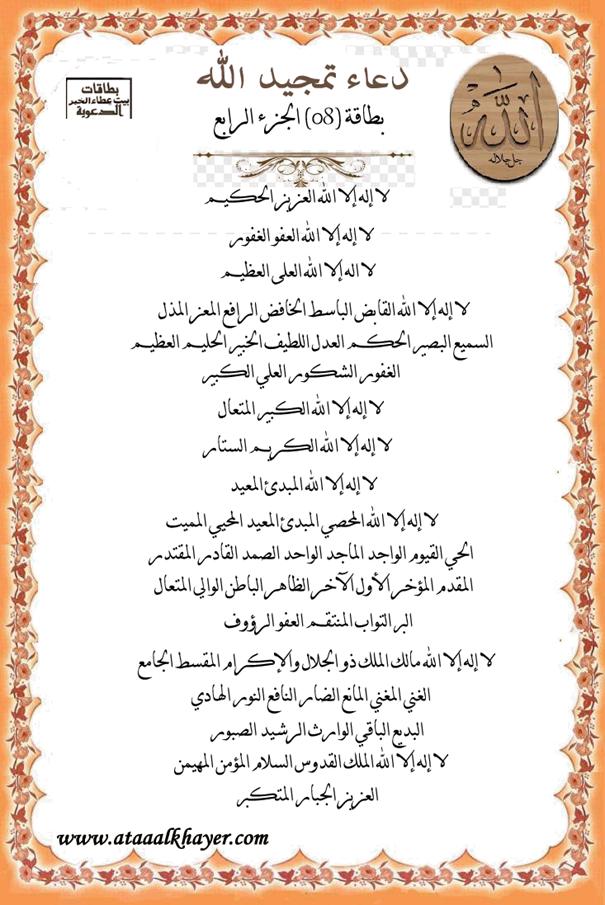 دعاء تمجيد الله
بطاقة (08) الجزء الرابع
بطاقات
بيت عطاء الخير
الدعوية
الله
جل جلاله
لا إله إلا الله العزيز الحكيم
لا إله إلا الله العفو الغفور
لا اله إلا الله العلى العظيم
لا إله إلا الله القابض الباسط الخافض الرافع المعز المذل
السميع البصير الحكم العدل اللطيف الخبير الحليم العظيم
الغفور الشكور العلي الكبير
لا إله إلا الله الكبير المتعال
لا إله إلا الله الكريم الستار
لا إله إلا الله المبدئ المعيد
لا إله إلا الله المحصي المبدئ المعيد المحيي المميت
الحي القيوم الواجد الماجد الواحد الصمد القادر المقتدر
المقدم المؤخر الأول الآخر الظاهر الباطن الوالي المتعال
البر التواب المنتقم العفو الرؤوف
لا إله إلا الله مالك الملك ذو الجلال والإكرام المقسط الجامع
الغني المغني المانع الضار النافع النور الهادي
البديع الباقي الوارث الرشيد الصبور
لا إله إلا الله الملك القدوس السلام المؤمن المهيمن
العزيز الجبار المتكبر
www.ataaalkhayer.com